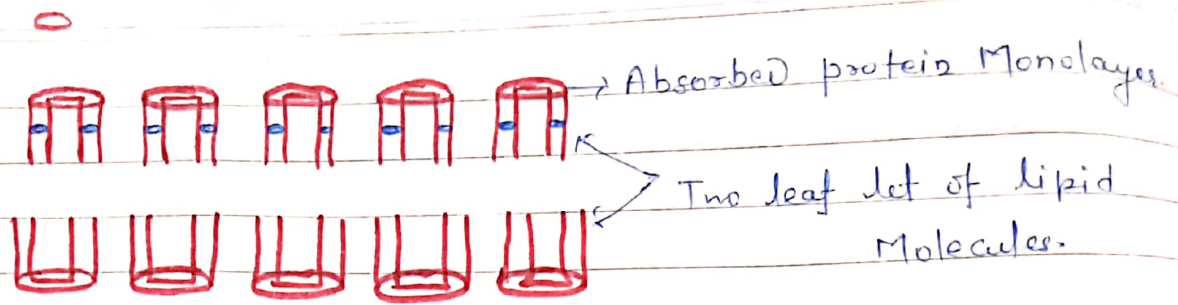 Absorbed protein Monolayer.
Two leaf let of lipid
Molecules.